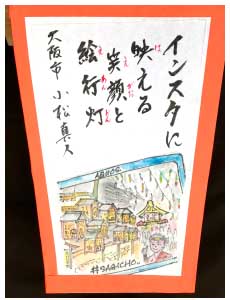 インスタに
映える
笑顔と
絵行灯
大阪市 小松真人